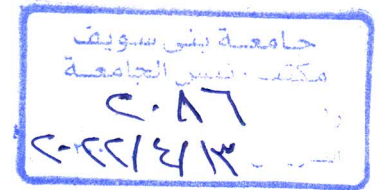 جامعة بنى سويف
مكتب رئيس الجامعة
٢٠٨٦
٢٠٢٢/٤/١٣